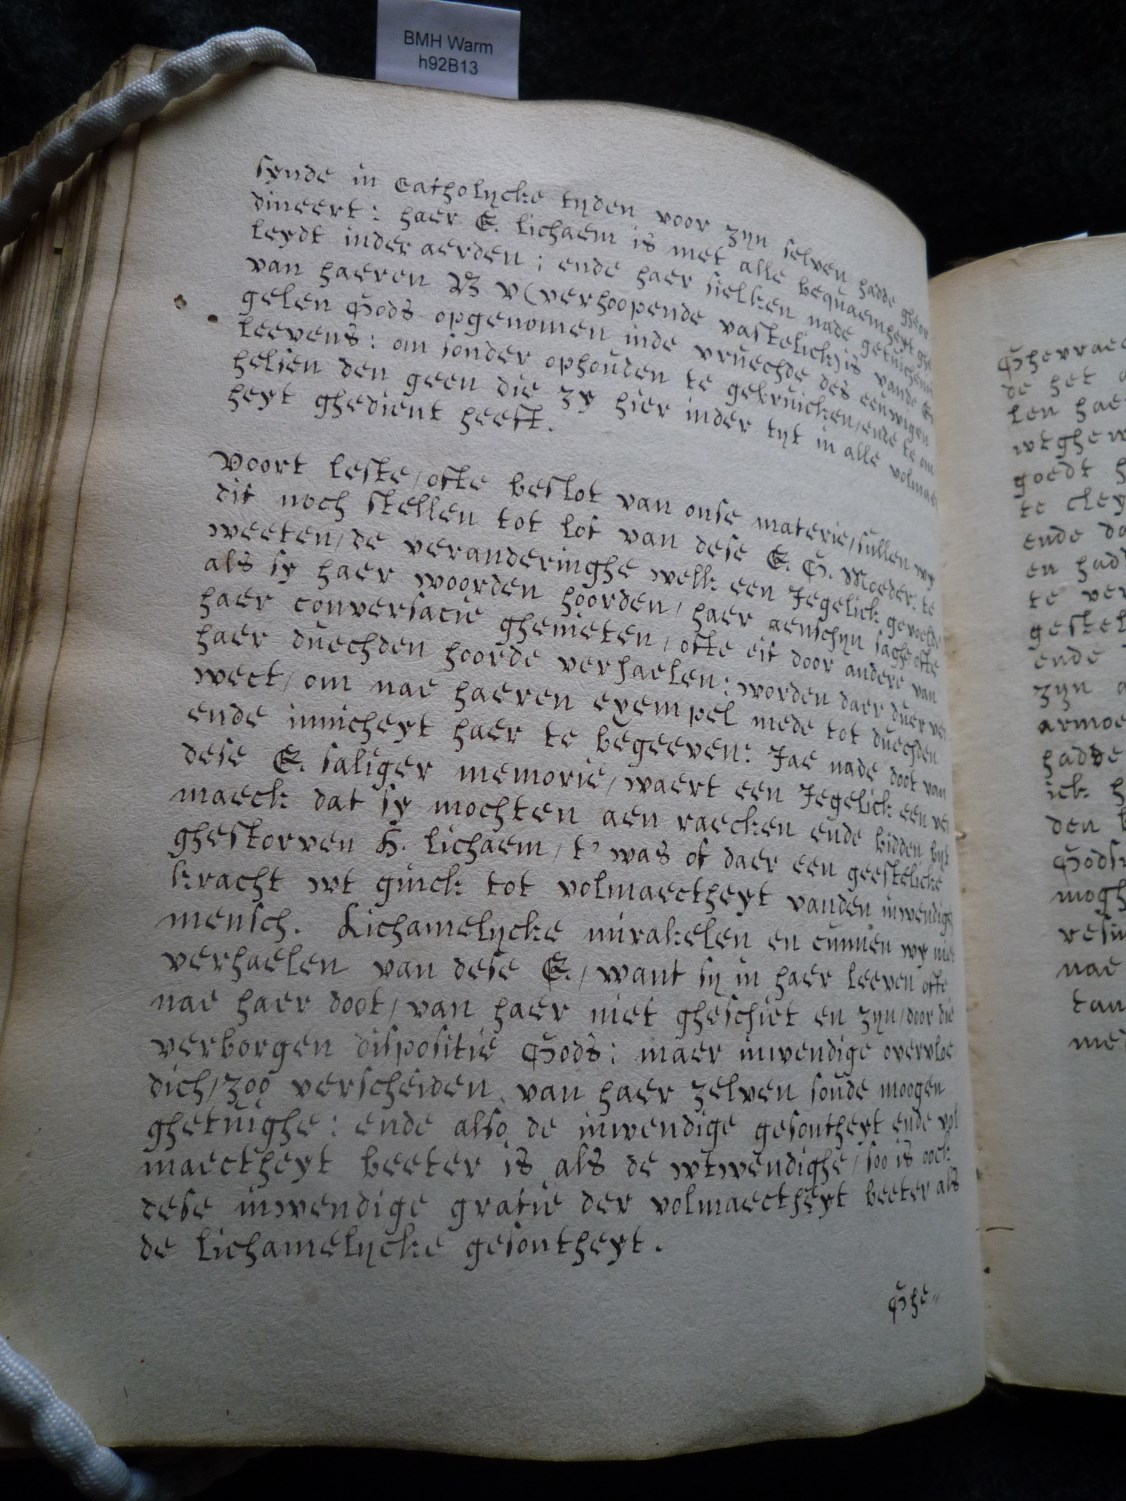 BMH Warm
h92B13
synde in Catholycke tyden voor zyn selven hadde gheor
dineert: haer E. lichaem is met alle bequaemheyt ghe
leydt inder aerden; ende haer sielken nade getuichenis
van haeren B V (verhoopende vastelick) is vande En
gelen Gods opgenomen inde vruechde des eeuwigen
leevens: om sonder ophouden te gebruicken, ende te om
helsen den geen die zy hier inder tyt in alle volmaect
heyt ghedient heeft.
Voort leste, ofte beslot van onse materie, sullen wy
dit noch stellen tot lof van dese E. G. Moeder: te
weeten, de veranderinghe welk een Iegelick gevoelde
als sy haer woorden hoorden, haer aenschyn sagh ofte
haer conversacie ghenieten, ofte eist door andere van
haer duechden hoorde verhaelen: worden daer duer ver
wect, om nae haeren exempel mede tot duechden
ende innicheyt haer te begeeven: Iae nade doot van
dese E. saliger memorie, waert een Iegelick een ver
maeck dat sy mochten aen raecken ende bidden byt
ghestorven H. lichaem, t' was of daer een geestelicke
kracht wt ginck tot volmaectheyt vanden inwendigh
mensch. Lichamelycke mirakelen en cunnen wy niet
verhaelen van dese E., want sy in haer leeven ofte
nae haer doot, van haer niet gheschiet en zyn, door die
verborgen dispositie Gods: maer inwendige overvloe
dich, zoo verscheiden van haer zelven soude moogen
ghetuighe: ende also de inwendige gesontheyt ende vol
maectheyt beeter is als de wtwendighe, soo is oock
dese inwendige gratie der volmaectheyt beeter als
de lichamelycke gesontheyt.
Ghe„
Ghevrae
de het
len hae
weghew
goedt h
te cley
ende da
en had
te ver
gestel
ende
zyn
armoe
hadde
ick h
den
Gods
mogh
resu
nae
tan
med